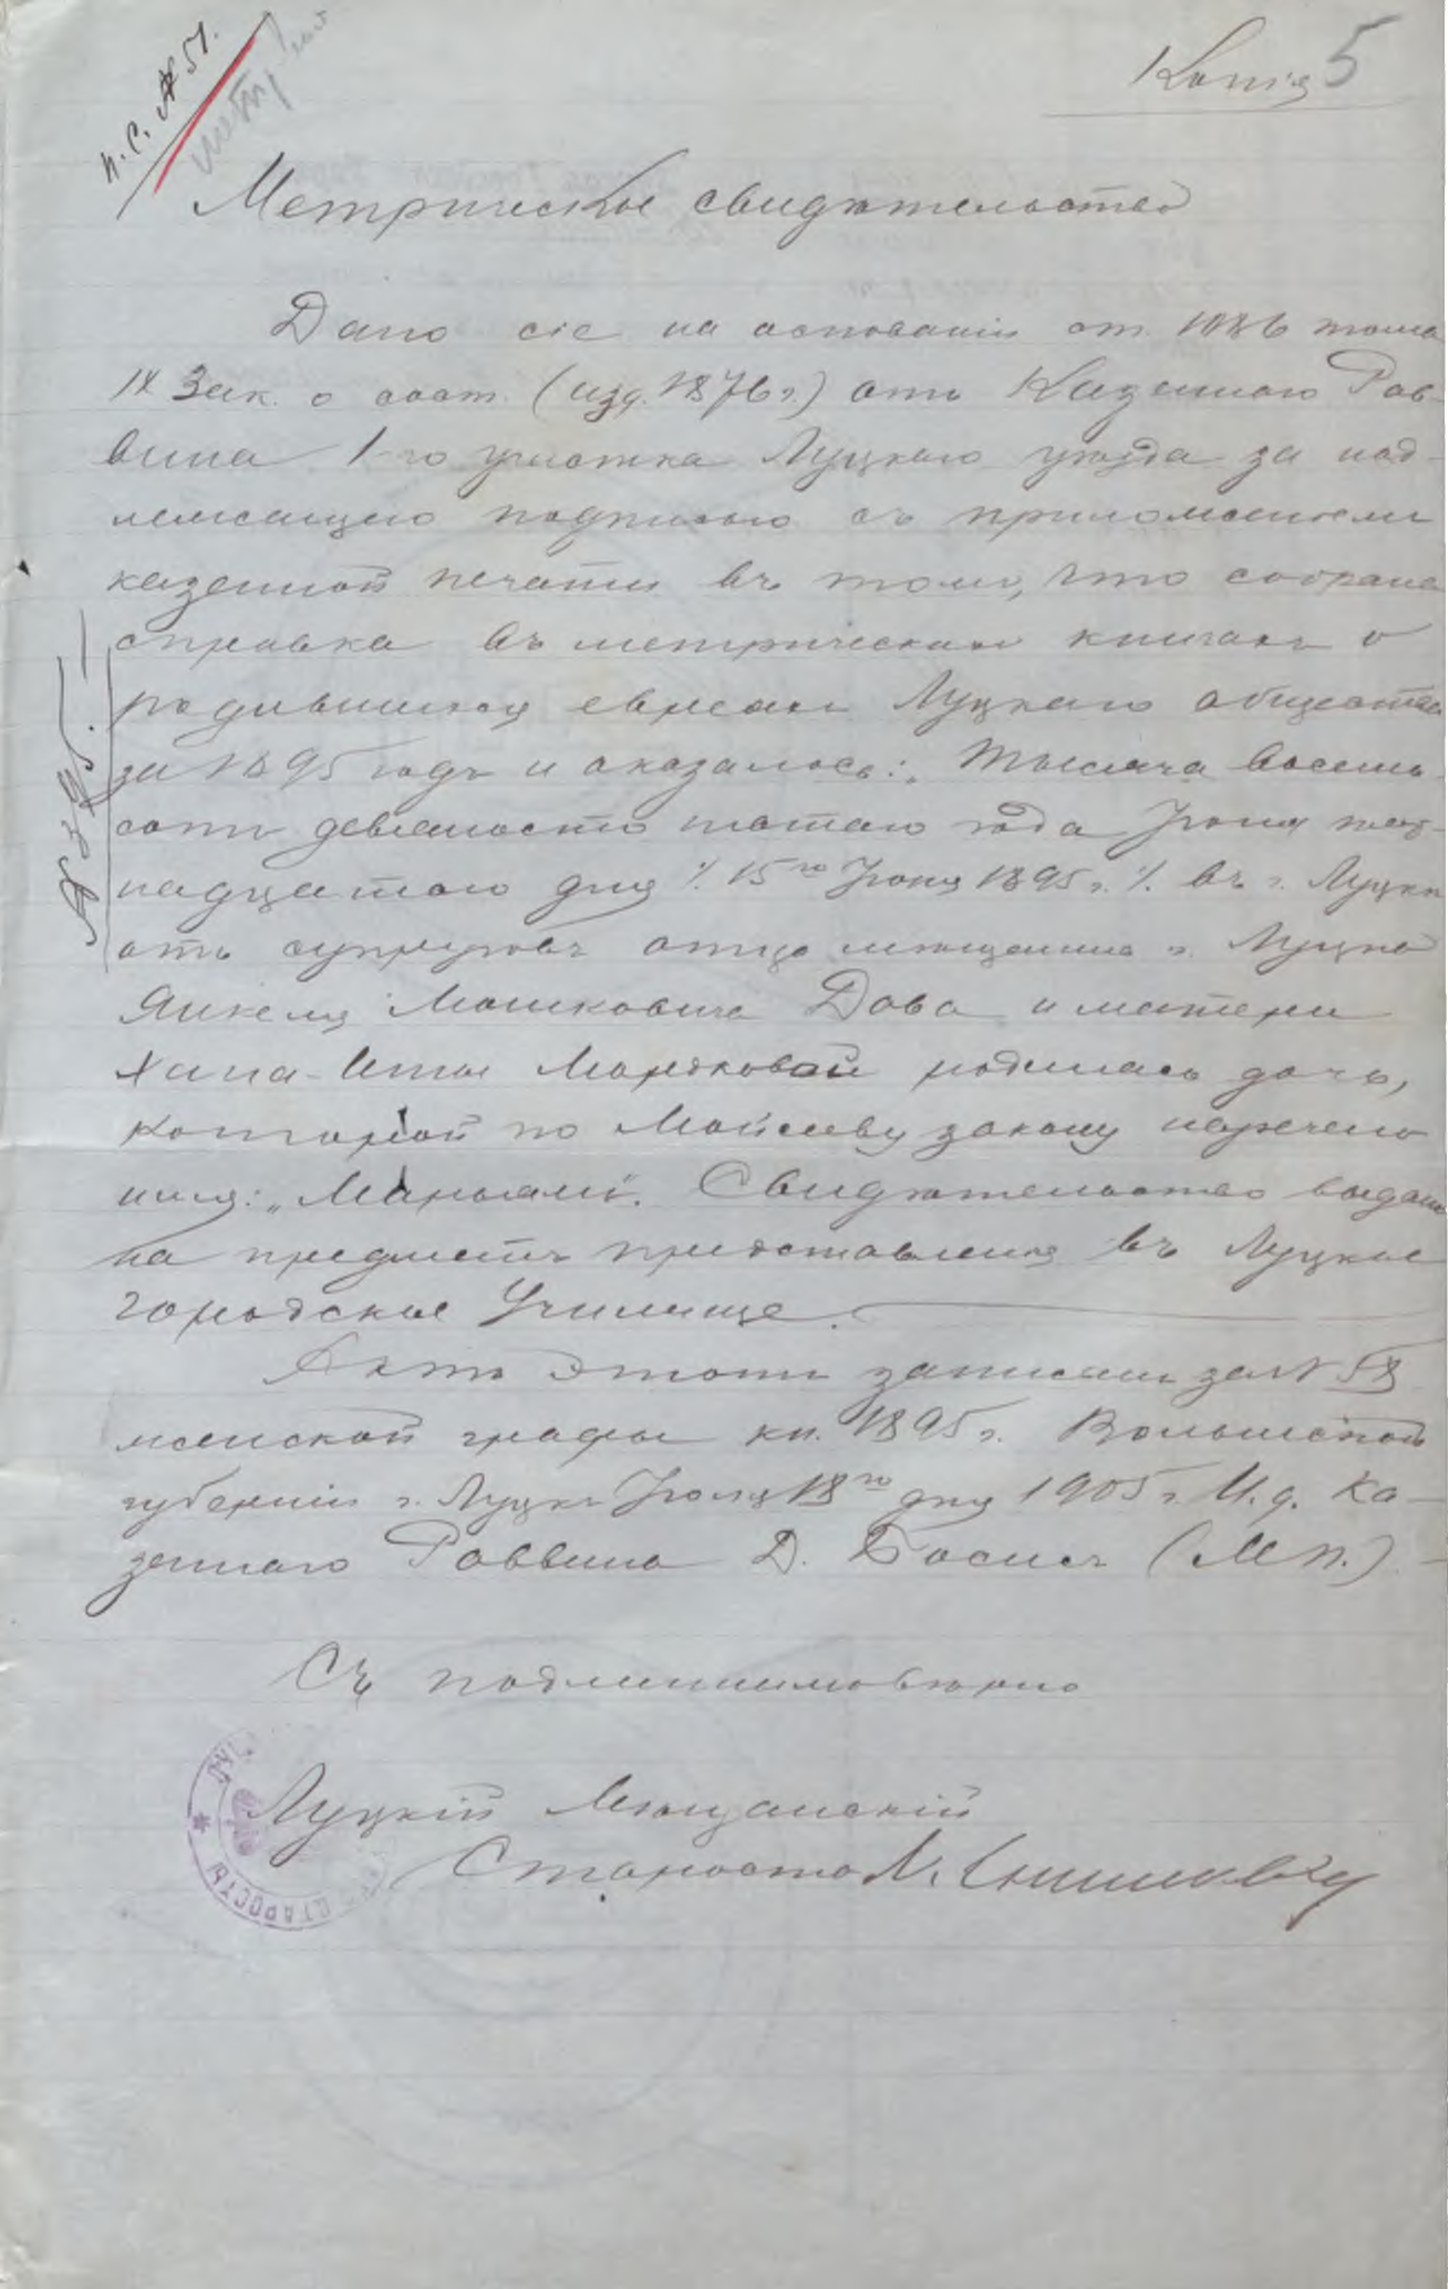 Копія 5
п. с. № 51.
Метрическое свидѣтельство
Дано сіе на основаніи ст. 1086 тома
IX Зак. о сост. (изд. 1876 г.) отъ Казеннаго Рав-
вина 1-го участка Луцкаго уѣзда за над-
лежащею подписью съ приложеніемъ
казенной печати въ томъ, что собрана
справка въ метрическихъ книгахъ о
родившихся евреяхъ Луцкаго общества
за 1895 годъ и оказалось: „Тысяча восемь-
сотъ девяносто пятаго года Іюня пят-
надцатаго дня ·/. 15го Іюня 1895 г. ·/. въ г. Луцкѣ
отъ супруговъ отца мѣщанина г. Луцка
Янкеля Мошковича Дова и матери
Хана-Итты Мордковой родилась дочь,
которой по Моисееву закону наречено
имя: „Марьямъ". Свидѣтельство выдано
на предметъ представленія въ Луцкое
городское Училище.
Актъ этотъ записанъ за № 58
женской графы кн. 1895 г. Волынской
губерніи г. Луцкъ Іюля 18го дня 1905 г. И. д. Ка-
зеннаго Раввина Д. Басисъ (М п.)
Съ подлиннымъ вѣрно
Луцкій Мѣщанскій
Староста